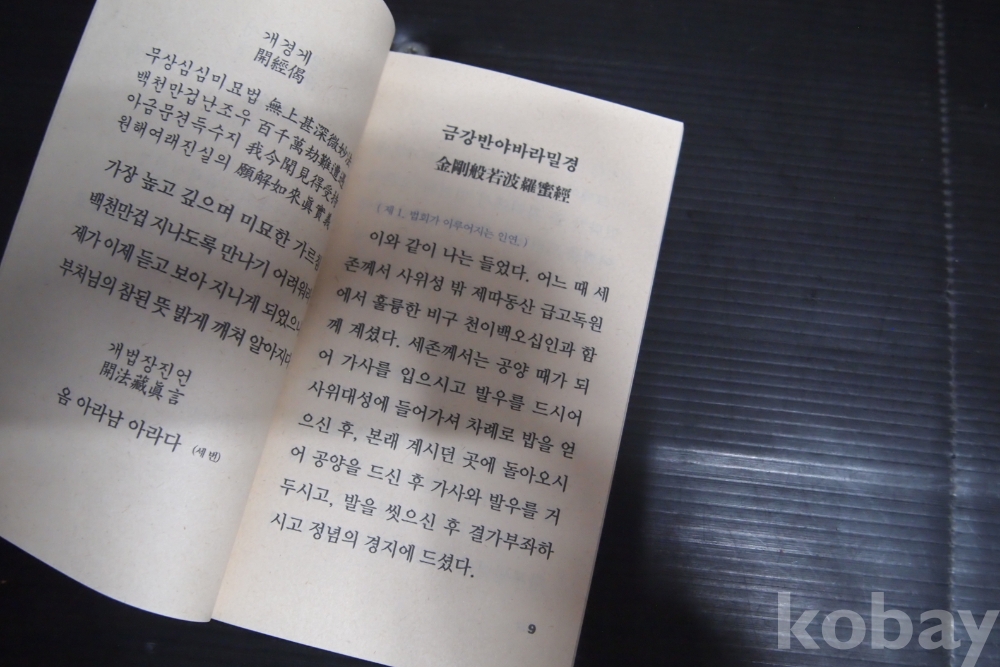 개경게
開經偈
무상심심미묘법 無上甚深微妙法
백천만겁난조우 百千萬劫難遭遇
아금문견득수지 我今聞見得受持
원해여래진실의 願解如來眞實義
가장 높고 깊으며 미묘한
백천만겁 지나도록 만나기 어려워라
제가 이제 듣고 보아 지니게 되었으니
부처님의 참된 뜻 밝게 깨쳐 알아지다
개법장진언
開法藏眞言
옴 아라남 아라다 (세 번)
금강반야바라밀경
金剛般若波羅蜜經
(제 1. 법회가 이루어지는 인연.)
이와 같이 나는 들었다. 어느 때 세
존께서 사위성 밖 제따동산 급고독원
에서 훌륭한 비구 천이백오십인과 함
께 계셨다. 세존께서는 공양 때가 되
어 가사를 입으시고 발우를 드시어
사위대성에 들어가셔 차례로 밥을 얻
으신 후, 본래 계시던 곳에 돌아오시
어 공양을 드신 후 가사와 발우를 거
두시고, 발을 씻으신 후 결가부좌하
시고 정념의 경지에 드셨다.
9
kobay